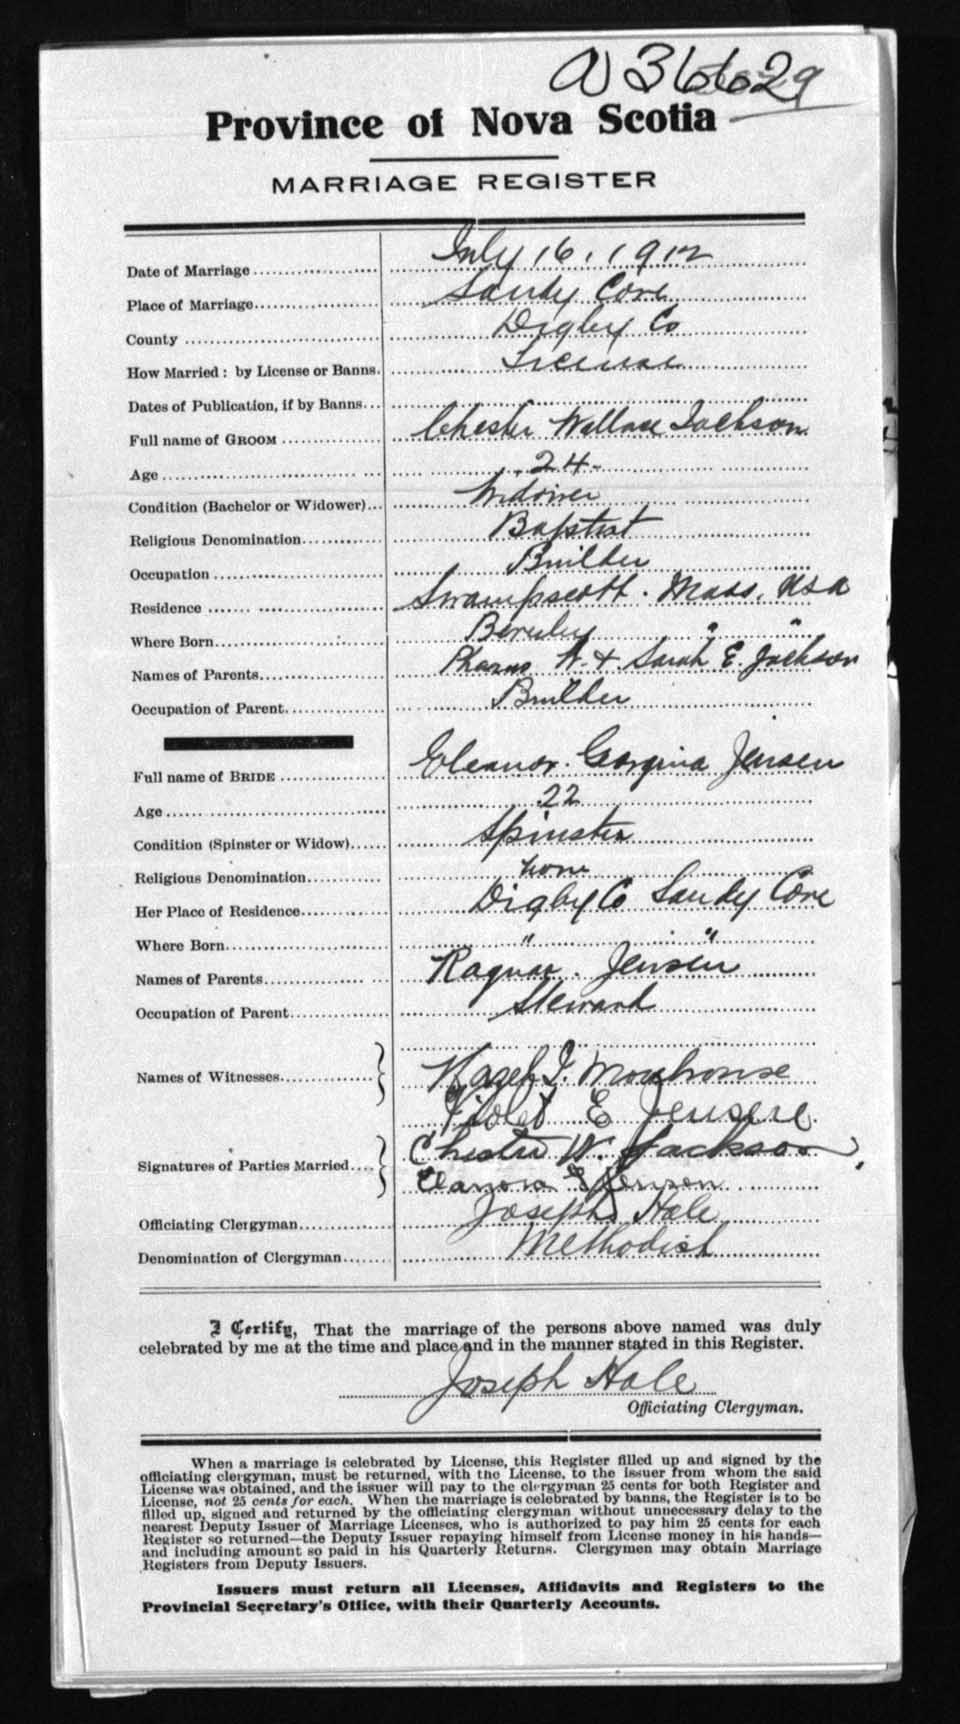 A 36629
Province of Nova Scotia
MARRIAGE REGISTER
Date of Marriage July 16, 1912
Place of Marriage Sandy Cove
County Digby Co
How Married: by License or Banns. License
Dates of Publication, if by Banns
Full name of GROOM Chester Wallace Jackson
Age 24
Condition (Bachelor or Widower) Widower
Religious Denomination Baptist
Occupation Builder
Residence Swampscott. Mass, USA
Where Born Beverley " "
Names of Parents W. & Sarah E. Jackson
Occupation of Parent Builder
Full name of BRIDE Eleanor Georgina Jensen
Age 22
Condition (Spinster or Widow) Spinster
Religious Denomination none
Her Place of Residence Digby Co Sandy Cove
Where Born " "
Names of Parents Ragnar. Jensen
Occupation of Parent Steward
Names of Witnesses Hazel I. Morehouse
Violet E Jensen
Signatures of Parties Married Chester W. Jackson
Jenson
Officiating Clergyman Joseph Hale
Denomination of Clergyman Methodist
I Certify, That the marriage of the persons above named was duly
celebrated by me at the time and place and in the manner stated in this Register.
Joseph Hale
Officiating Clergyman.
When a marriage is celebrated by License, this Register filled up and signed by the
officiating clergyman, must be returned, with the License, to the issuer from whom the said
License was obtained, and the issuer will pay to the clergyman 25 cents for both Register and
License, not 25 cents for each. When the marriage is celebrated by banns, the Register is to be
filled up, signed and returned by the officiating clergyman without unnecessary delay to the
nearest Deputy Issuer of Marriage Licenses, who is authorized to pay him 25 cents for each
Register so returned—the Deputy Issuer repaying himself from License money in his hands—
and including amount so paid in his Quarterly Returns. Clergymen may obtain Marriage
Registers from Deputy Issuers.
Issuers must return all Licenses, Affidavits and Registers to the
Provincial Secretary's Office, with their Quarterly Accounts.